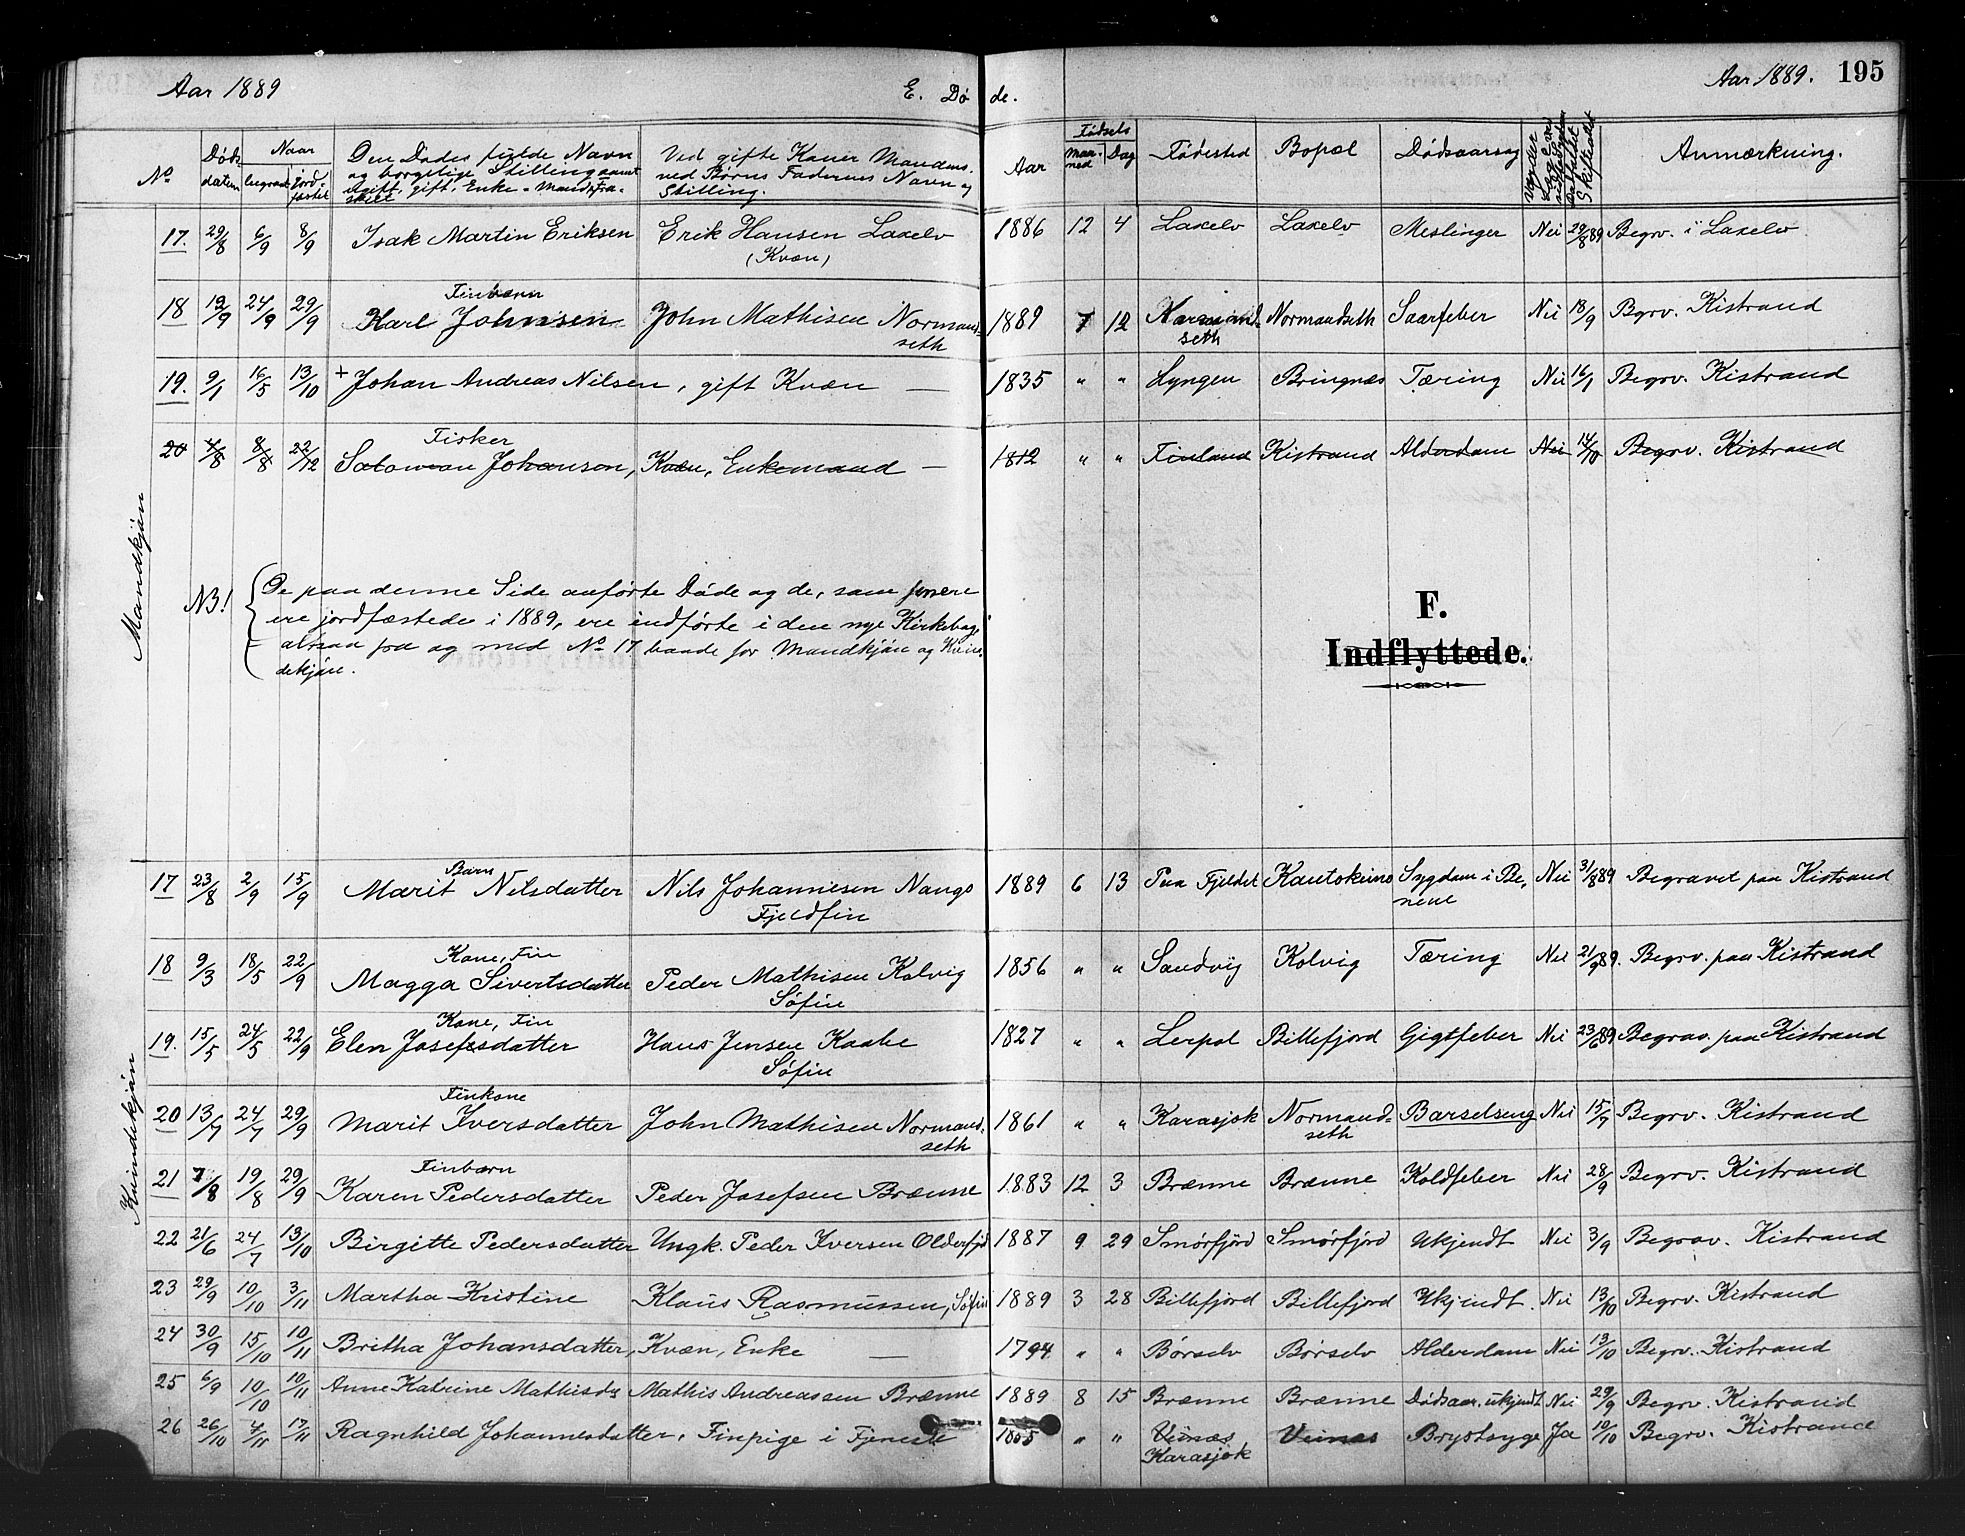 Aar 1889 E. Dø de. Aar 1889. 195
No Døds datum Naar begravet jordfæstet Den Dødes fulde Navn og borgelige Stilling samt ugift, gift, Enke- Mand, Fraskilt Ved gifte Koner Mandens, ved Børns Faderens Navn og Stilling. Aar Fødsels Maaned Dag Fødested Bopæl Dødsaarsag Skifteattest Anmærkning.
Mandkjøn
17. 29/8 6/9 8/9 Isak Martin Eriksen Erik Hansen Laxelv (Kvæn) 1886 12 4 Laxelv Laxelv Meslinger Nei 29/8 89 Begrv. i Laxelv
Finbarn
18 12/9 24/9 29/9 Karl Johnsen John Mathisen Normandseth 1889 7 12 Normandseth Normandseth Saarfeber Nei 18/9 Bgrv. Kistrand
19. 9/1 16/5 13/10 + Johan Andreas Nilsen, gift Kvæn — 1835 " " Lyngen Bringnæs Tæring Nei 16/1 Begrv. Kistrand
Fisker
20 4/8 8/8 22/12 Salomon Johanson, Kvæn, Enkemand — 1812 " " Finland Kistrand Alderdom Nei 14/10 Begrv. Kistrand
NB! De paa denne Side anførte Døde og de, som senere
ere jordfæstede i 1889, ere indførte i den nye Kirkebog,
altsaa fra og med No 17 baade for Mandkjøn og Kvin-
dekjøn.
F.
Indflyttede.
Kvindekjøn
Barn
17 23/8 2/9 15/9 Marit Nilsdatter Nils Johannesen Nango Fjeldfin 1889 6 13 Paa Fjeldet Kautokeino Sygdom i Benene Nei 31/8 89 Begravet paa Kistrand
Kone, Fin
18 9/3 18/5 22/9 Magga Sivertsdatter Peder Mathisen Kolvig Søfin 1856 " " Sandvig Kolvig Tæring Nei 21/9 89. Begrv. paa Kistrand
Kone, Fin
19. 15/5 24/5 22/9 Elen Josefsdatter Hans Jensen Kaabe Søfin 1827 " " Lerpol Billefjord Gigtfeber Nei 23/6 89 Begrav. paa Kistrand
Finkone
20 13/7 24/7 29/9 Marit Iversdatter John Mathisen Normandseth 1861 " " Karasjok Normandseth Barselseng Nei 15/7 Begrv. Kistrand
Finbarn
21 7/8 19/8 29/9 Karen Pedersdatter Peder Josefsen Brænne 1883 12 3 Brænne Brænne Koldfeber Nei 28/9 Begrv. Kistrand
22 21/6 24/7 13/10 Birgitte Pedersdatter Ungk. Peder Iversen Olderfjd 1887 9 29 Smørfjord Smørfjord Ukjendt Nei 3/9 Begrav. Kistrand
23 29/9 10/10 3/11 Martha Kristine Klaus Rasmussen, Søfin 1889 3 28 Billefjord Billefjord Ukjendt. Nei 13/10 Begrv. Kistrand
24 30/9 15/10 10/11 Britha Johansdatter, Kvæn, Enke — 1794 " " Børselv Børselv Alderdom Nei 13/10 Begrv. Kistrand
25 6/9 10/10 10/11 Anne Katrine Mathisdr Mathis Andreassen Brænne 1889 8 15 Brænne Brænne Dødsaar. ukjendt Nei 29/9 Begrv. Kistrand
26 26/10 4/11 17/11 Ragnhild Johannesdatter, Finpige i Tjeneste " " Veinæs Karasjok Veinæs Brystsyge Ja 10/10 Begrv. Kistrand